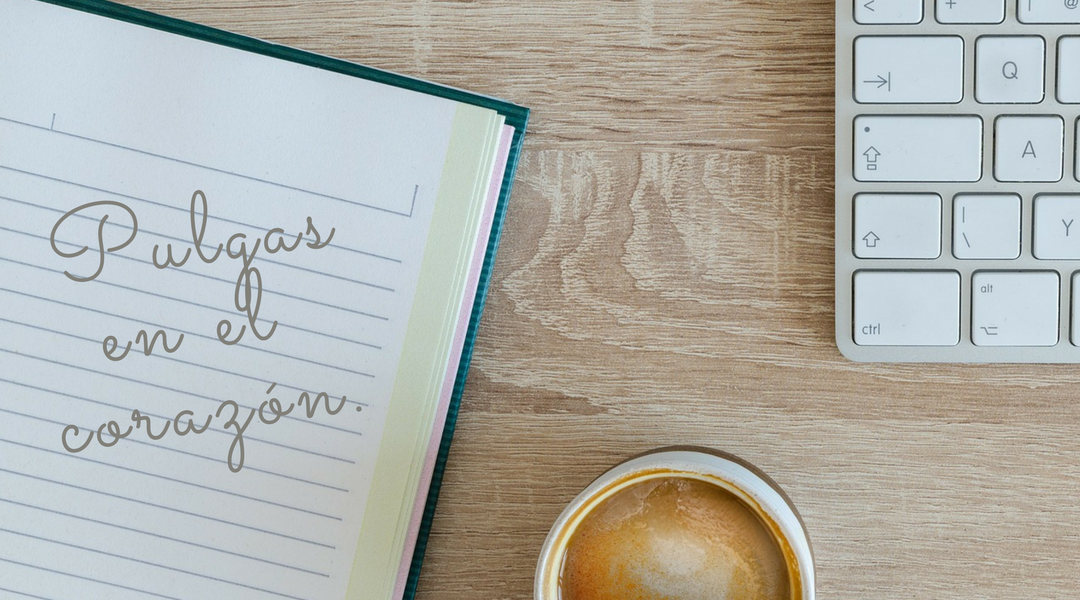 Pulgas
en el
corazón.
< + @
Q
A
| \ Y
ctrl alt